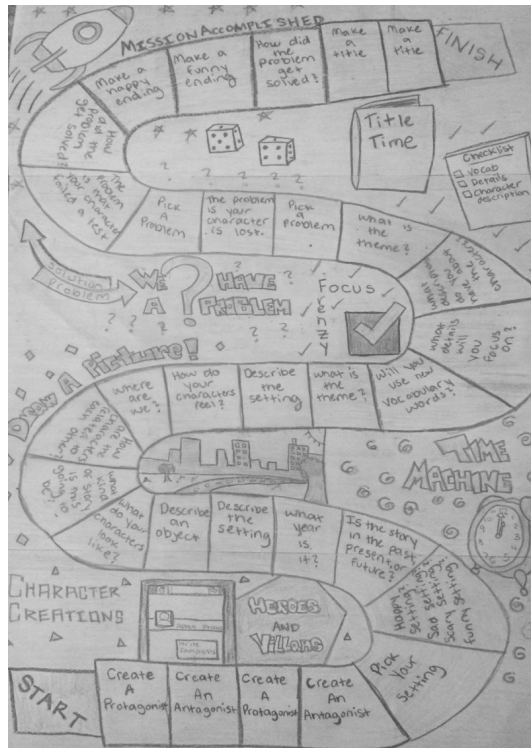 MISSION ACCOMPLISHED
FINISH
Make a happy ending
Make a funny ending
How did the problem get solved?
Make a title
Make a title
How did the problem get solved?
The problem is that your character failed a test
Title
Time
Checklist
Vocab
Details
Character
description
Pick
A
Problem
The problem
is your
character
is lost.
Pick
a
problem
what is
the
theme?
solution
problem
WE HAVE
A PROBLEM
FOCUS
Frenzy
what
details
will
you
focus
on?
Draw A Picture!
where
are
we?
How do
your
characters
feel?
Describe
the
setting
what is
the
theme?
Will you
use new
vocabulary
words?
How are the characters related to each other?
what kind of story is this going to be?
TIME
MACHINE
What do your characters look like?
Describe
an
object
Describe
the
setting
What
year
is
it?
Is the story
in the past,
present or
future?
Happy setting?
Sad setting?
Scary setting?
funny setting?
Pick
Your
setting
CHARACTER
CREATIONS
HEROES
AND
VILLANS
START
Create
A
Protagonist
Create
An
Antagonist
Create
A
Protagonist
Create
An
Antagonist